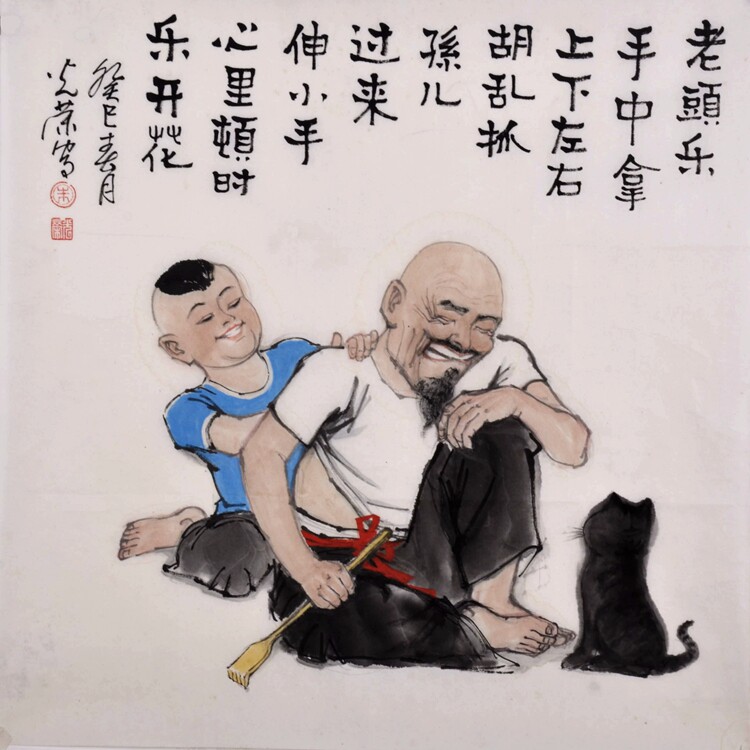 老頭乐
手中拿
上下左右
胡乱抓
孫儿
过来
伸小手
心里頓时
乐开花
癸巳春月
光荣写
朱